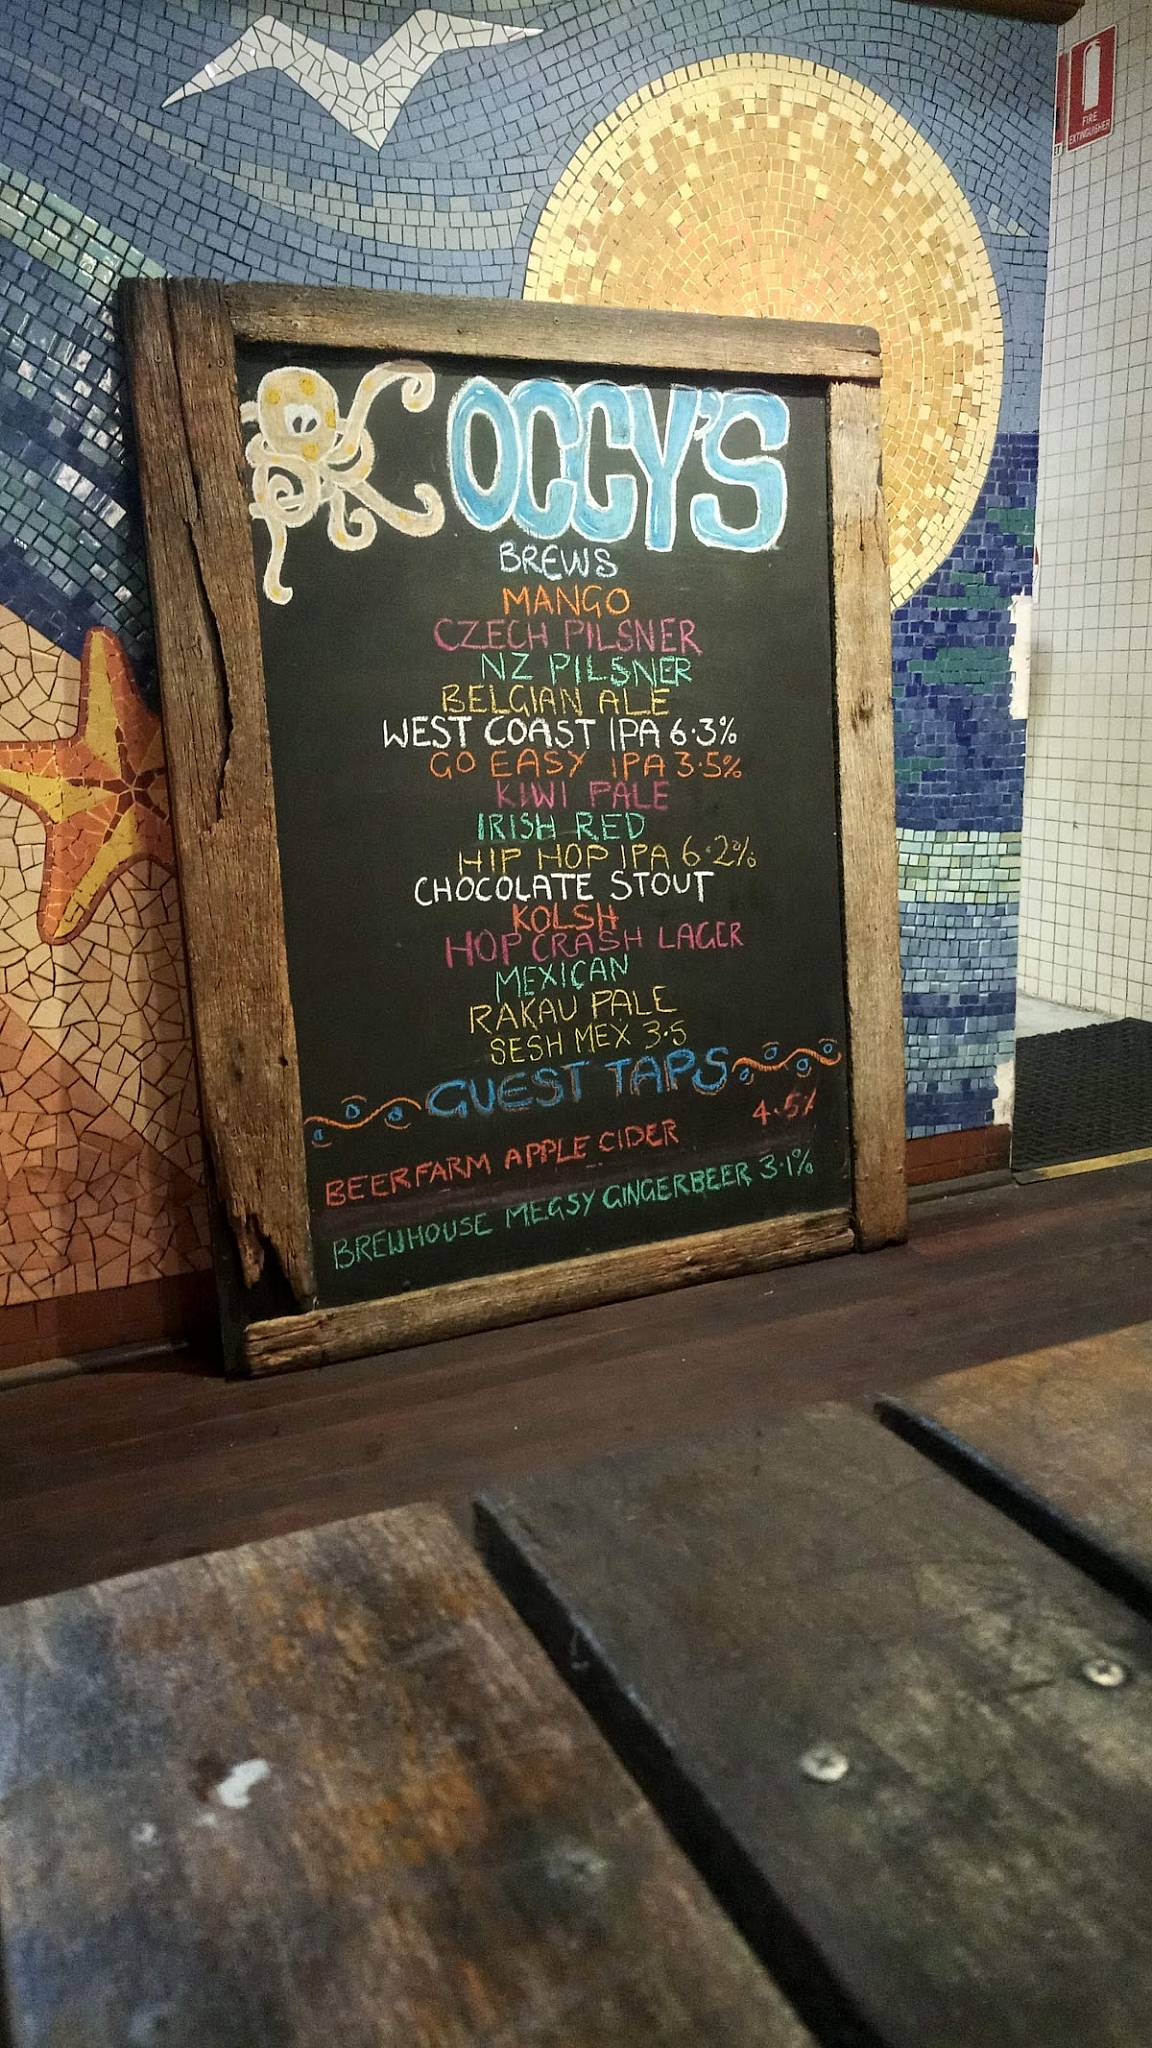 FIRE
EXTINGUISHER
OCCY'S
BREWS
MANGO
CZECH PILSNER
NZ PILSNER
BELGIAN ALE
WEST COAST IPA 6.3%
GO EASY IPA 3.5%
KIWI PALE
IRISH RED
HIP HOP IPA 6.2%
CHOCOLATE STOUT
KOLSH
HOP CRASH LAGER
MEXICAN
RAKAU PALE
SESH MEX 3.5
GUEST TAPS
BEERFARM APPLE CIDER 4.5%
BREWHOUSE MEGSY GINGERBEER 3.1%